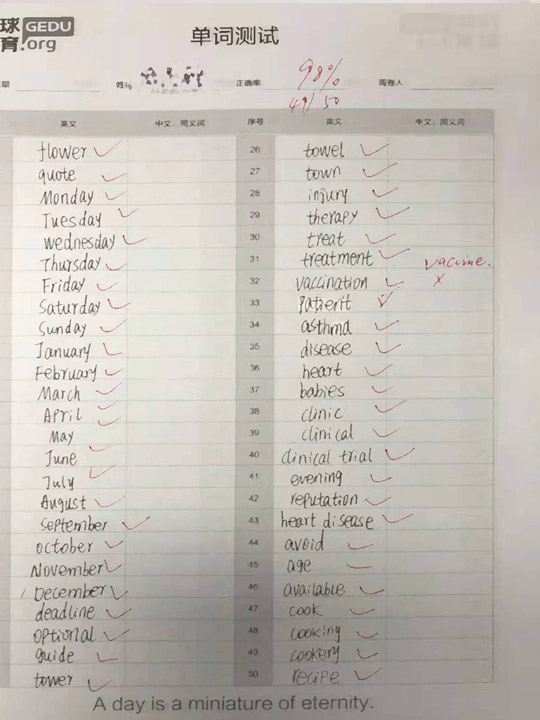 球 GEDU
育.org
单词测试
期 姓名 正确率 98% 阅卷人
49/50
英文 中文、同义词 序号 英文 中文、同义词
flower 26 towel
quote 27 town
Monday 28 injury
Tuesday 29 therapy
wednesday 30 treat
Thursday 31 treatment vaccine.
Friday 32 vaccination ×
Saturday 33 Patient
Sunday 34 asthma
January 35 disease
February 36 heart
March 37 babies
April 38 clinic
May 39 clinical
June 40 clinical trial
July 41 evening
August 42 reputation
September 43 heart disease
october 44 avoid
November 45 age
December 46 available
deadline 47 cook
optional 48 cooking
guide 49 cookery
tower 50 recipe
A day is a miniature of eternity.